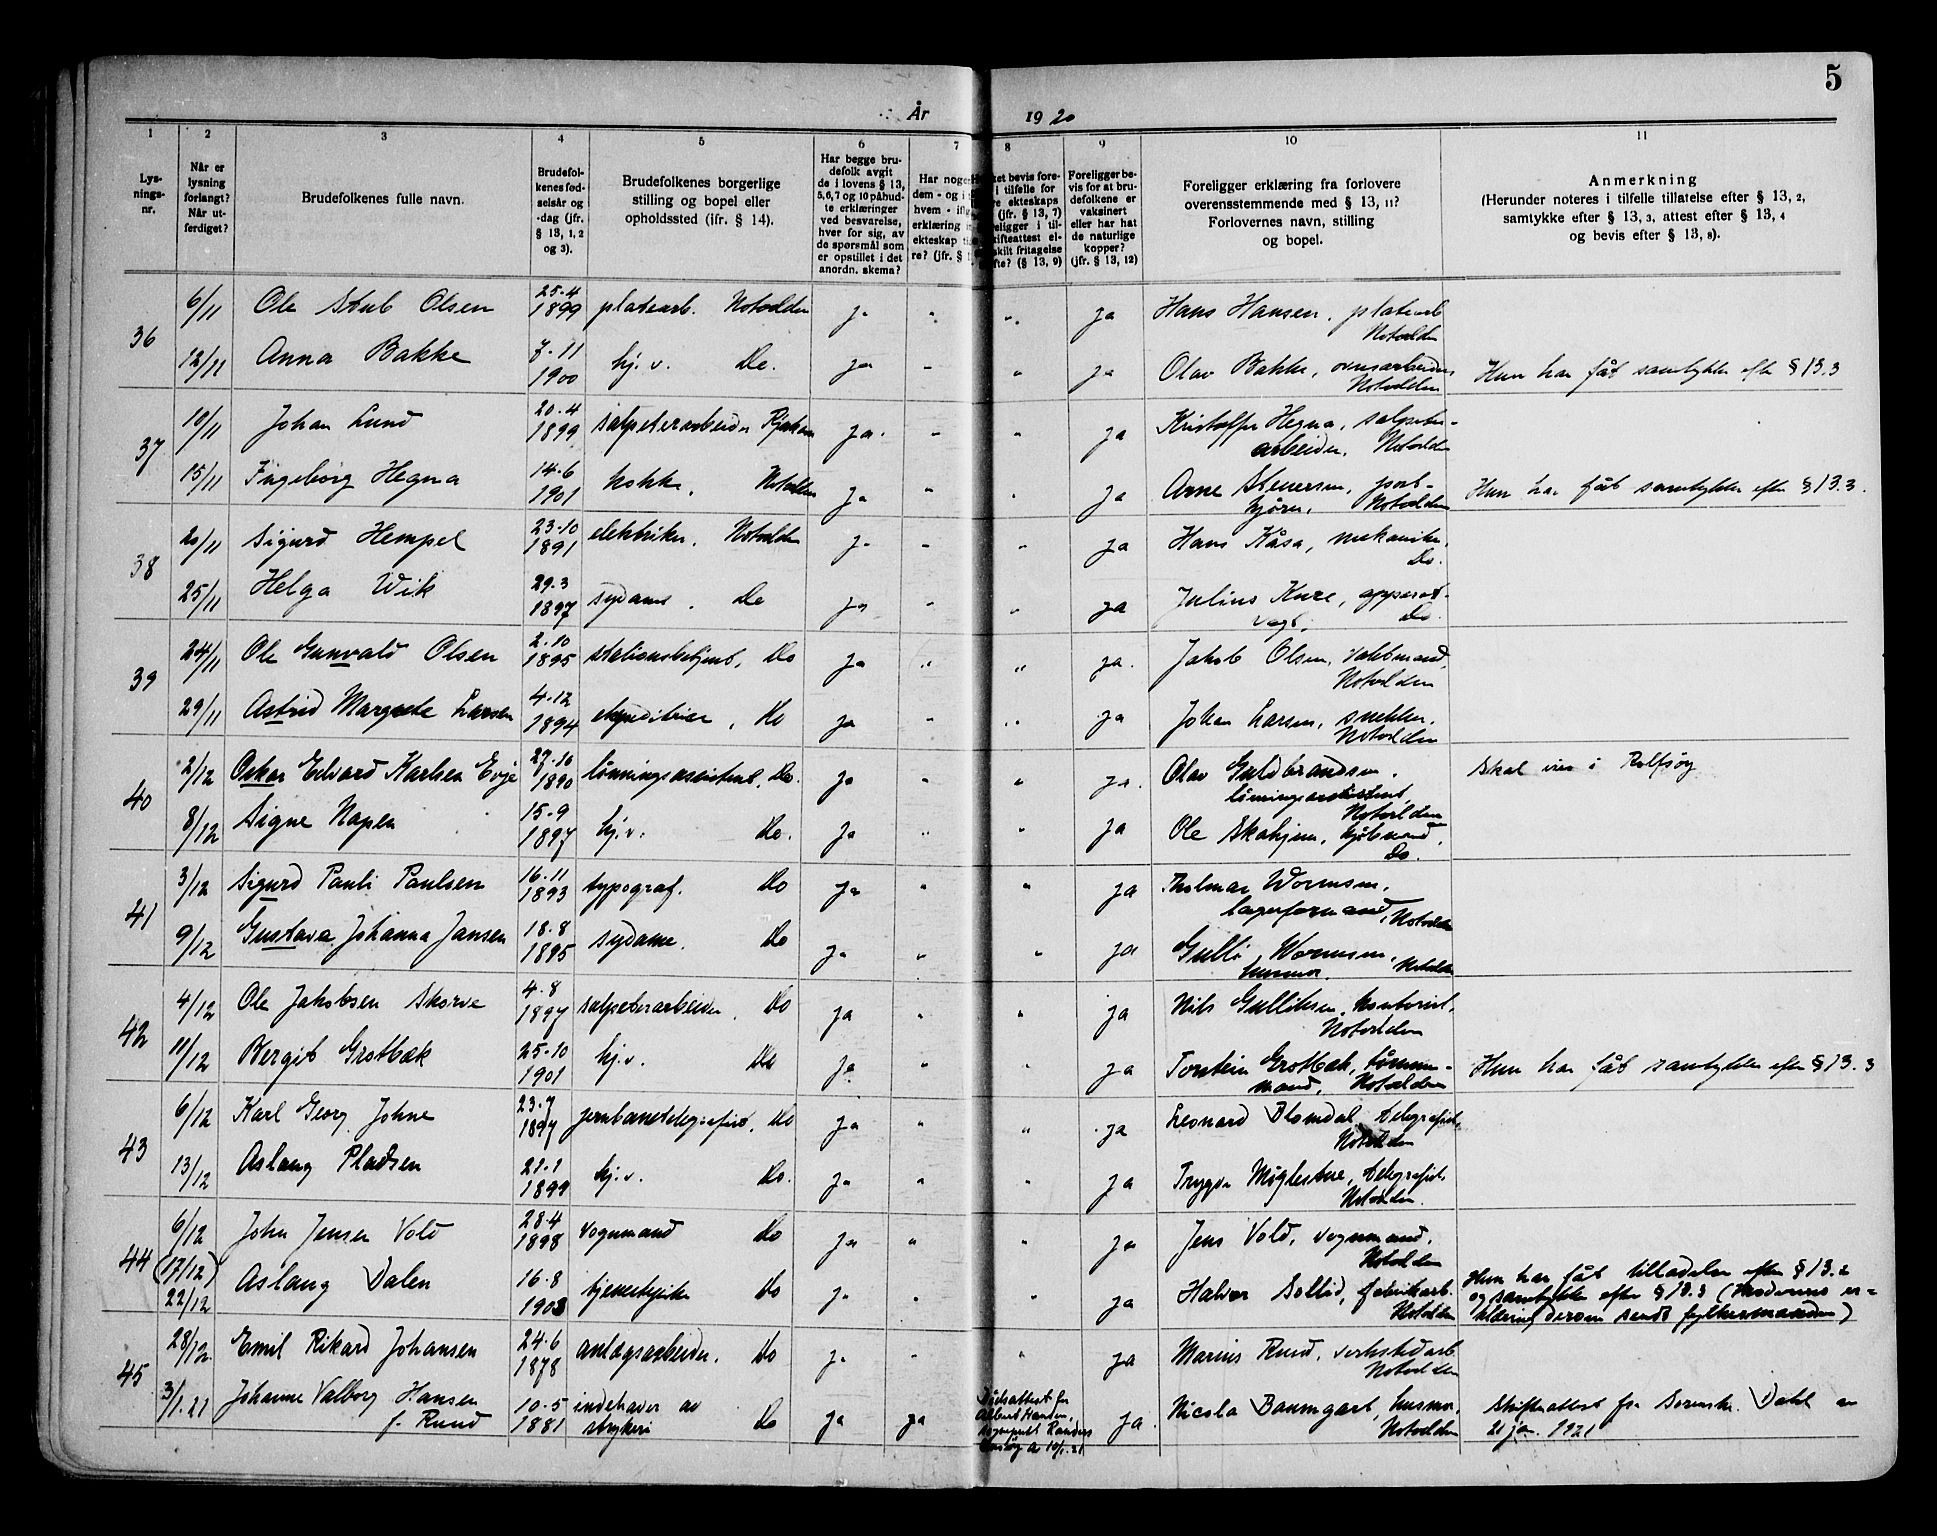 5
År 1920
1 2 3 4 5 6 7 8 9 10 11
Lys-
nings-
nr.
Når er
lysning
forlangt?
Når ut-
ferdiget?
Brudefolkenes fulle navn.
Brudefol-
kenes fød-
selsår og
-dag (jfr.
§ 13, 1, 2
og 3).
Brudefolkenes borgerlige
stilling og bopel eller
opholdssted (ifr. § 14).
Har begge bru-
defolk avgit
de i lovens § 13,
5,6,7 og 10 påbud-
te erklæringer
ved besvarelse,
hver for sig, av
de spørsmål som
er opstillet i det
anordn. skema?
Har noge
dem - og i
hvem - ifl
erklæring
ekteskap ti
re? (jfr. § 1
ket bevis fore-
i tilfelle for
re ekteskaps
(jfr. § 13, 7)
religger i til-
ifteattest el-
skilt fritagelse
fte? (§ 13, 9)
Foreligger be-
vis for at bru-
defolkene er
vaksinert
eller har hat
de naturlige
kopper?
(jfr. § 13, 12)
Foreligger erklæring fra forlovere
overensstemmende med § 13, 11?
Forlovernes navn, stilling
og bopel.
Anmerkning
(Herunder noteres i tilfelle tillatelse efter § 13, 2,
samtykke efter § 13, 3, attest efter § 13, 4
og bevis efter § 13, 8).
36 6/11 Ole Stub Olsen 25.4 1899 platearb. Notodden ja " " ja Hans Hansen, platearb
Notodden
12/11 Anna Bakke 7.11 1900 hj. v. Do. ja " " ja Olav Bakke, ovnsarbeider
Notodden Hun har fåt samtykke efter § 13.3
37 10/11 Johan Lund 20.4 1899 salpeterarbeider Rjukan ja. " " ja Kristoffer Hegna, salpeter-
arbeider, Notodden
15/11 Ingeborg Hegna 14.6 1901 kokke, Notodden ja " " ja Arne Steversen, port-
kjører, Notodden Hun har fåt samtykke efter § 13.3.
38 20/11 Sigurd Hempel 23.10 1891 elektriker, Notodden ja " " ja Hans Kåsa, mekaniker,
Do.
25/11 Helga Wik 29.3 1897 sydame, Do ja " " ja Julius Kure, apparat-
vagt, Do.
39 24/11 Ole Gunvald Olsen 2.10 1895 stationsbetjent, Do ja " " ja. Jakob Olsen, vaktmand,
Notodden
29/11 Astrid Margrete Larsen 4.12 1894 ekspeditrice, Do ja " " ja Johan Larsen, snekker,
Notodden
40 2/12 Oskar Edvard Karlsen Evje 27.10 1890 lønningsassistent, Do. ja " " ja. Olav Guldbrandsen,
lønningsassistent,
Notodden Skal vies i Rolfsøy
8/12 Signe Napen 15.9 1897 hj.v. Do. ja " " ja Ole Skahjem, kjøbmand,
Do.
41 3/12 Sigurd Pauli Paulsen 16.11 1893 typograf. Do ja " " ja Thelmar Wormsen,
lagerformand, Notodden
9/12 Gustava Johanna Jansen 18.8 1895 sydame, Do ja " " ja Gulli Wormsen,
husmor, Notodden
42 4/12 Ole Jakobsen Skorve 4.8 1897 salpeterarbeider, Do ja " " ja Nils Gulliksen, kontorist,
Notodden
11/12 Bergit Grotbæk 25.10 1901 hj.v. Do ja " " ja Torstein Grotbæk, tømmer-
mand, Notodden Hun har fåt samtykke efter § 13.3
43 6/12 Karl Georg Johne 23.7 1897 jernbanetelegrafist, Do ja " " ja Leonard Blomdal, telegrafist,
Notodden
13/12 Aslaug Pladsen 21.1 1899 hj.v. Do. ja " " ja Trygve Møglestue, telegrafist,
Notodden.
44 6/12 John Jensen Vold 28.4 1898 vognmand Do ja " " ja Jens Vold, vognmand,
Notodden
(17/12) 22/12 Aslaug Dalen 16.8 1903 tjenestepike Do ja " " ja Halvor Sollid, fabrikarb.
Notodden Hun har fåt tilladelse efter § 13.2
og samtykke efter § 13.3 (Moderens er-
klæring derom sendt fylkesmanden)
45 28/12 Emil Rikard Johansen 24.6 1878 anlægsarbeider, Do ja " " ja Marius Ruud, verkstedarb
Notodden
3/1.21 Johanne Valborg Hansen
f. Ruud 10.5 1881 indehaver av
strykeri Do ja ja Dødsattest for
Albert Hansen,
sogneprest Randers
10/1.21 ja. Nicola Baumgart, husmor,
Notodden Skifteattest fra Sorenskr. Dahl av
21 jan. 1921